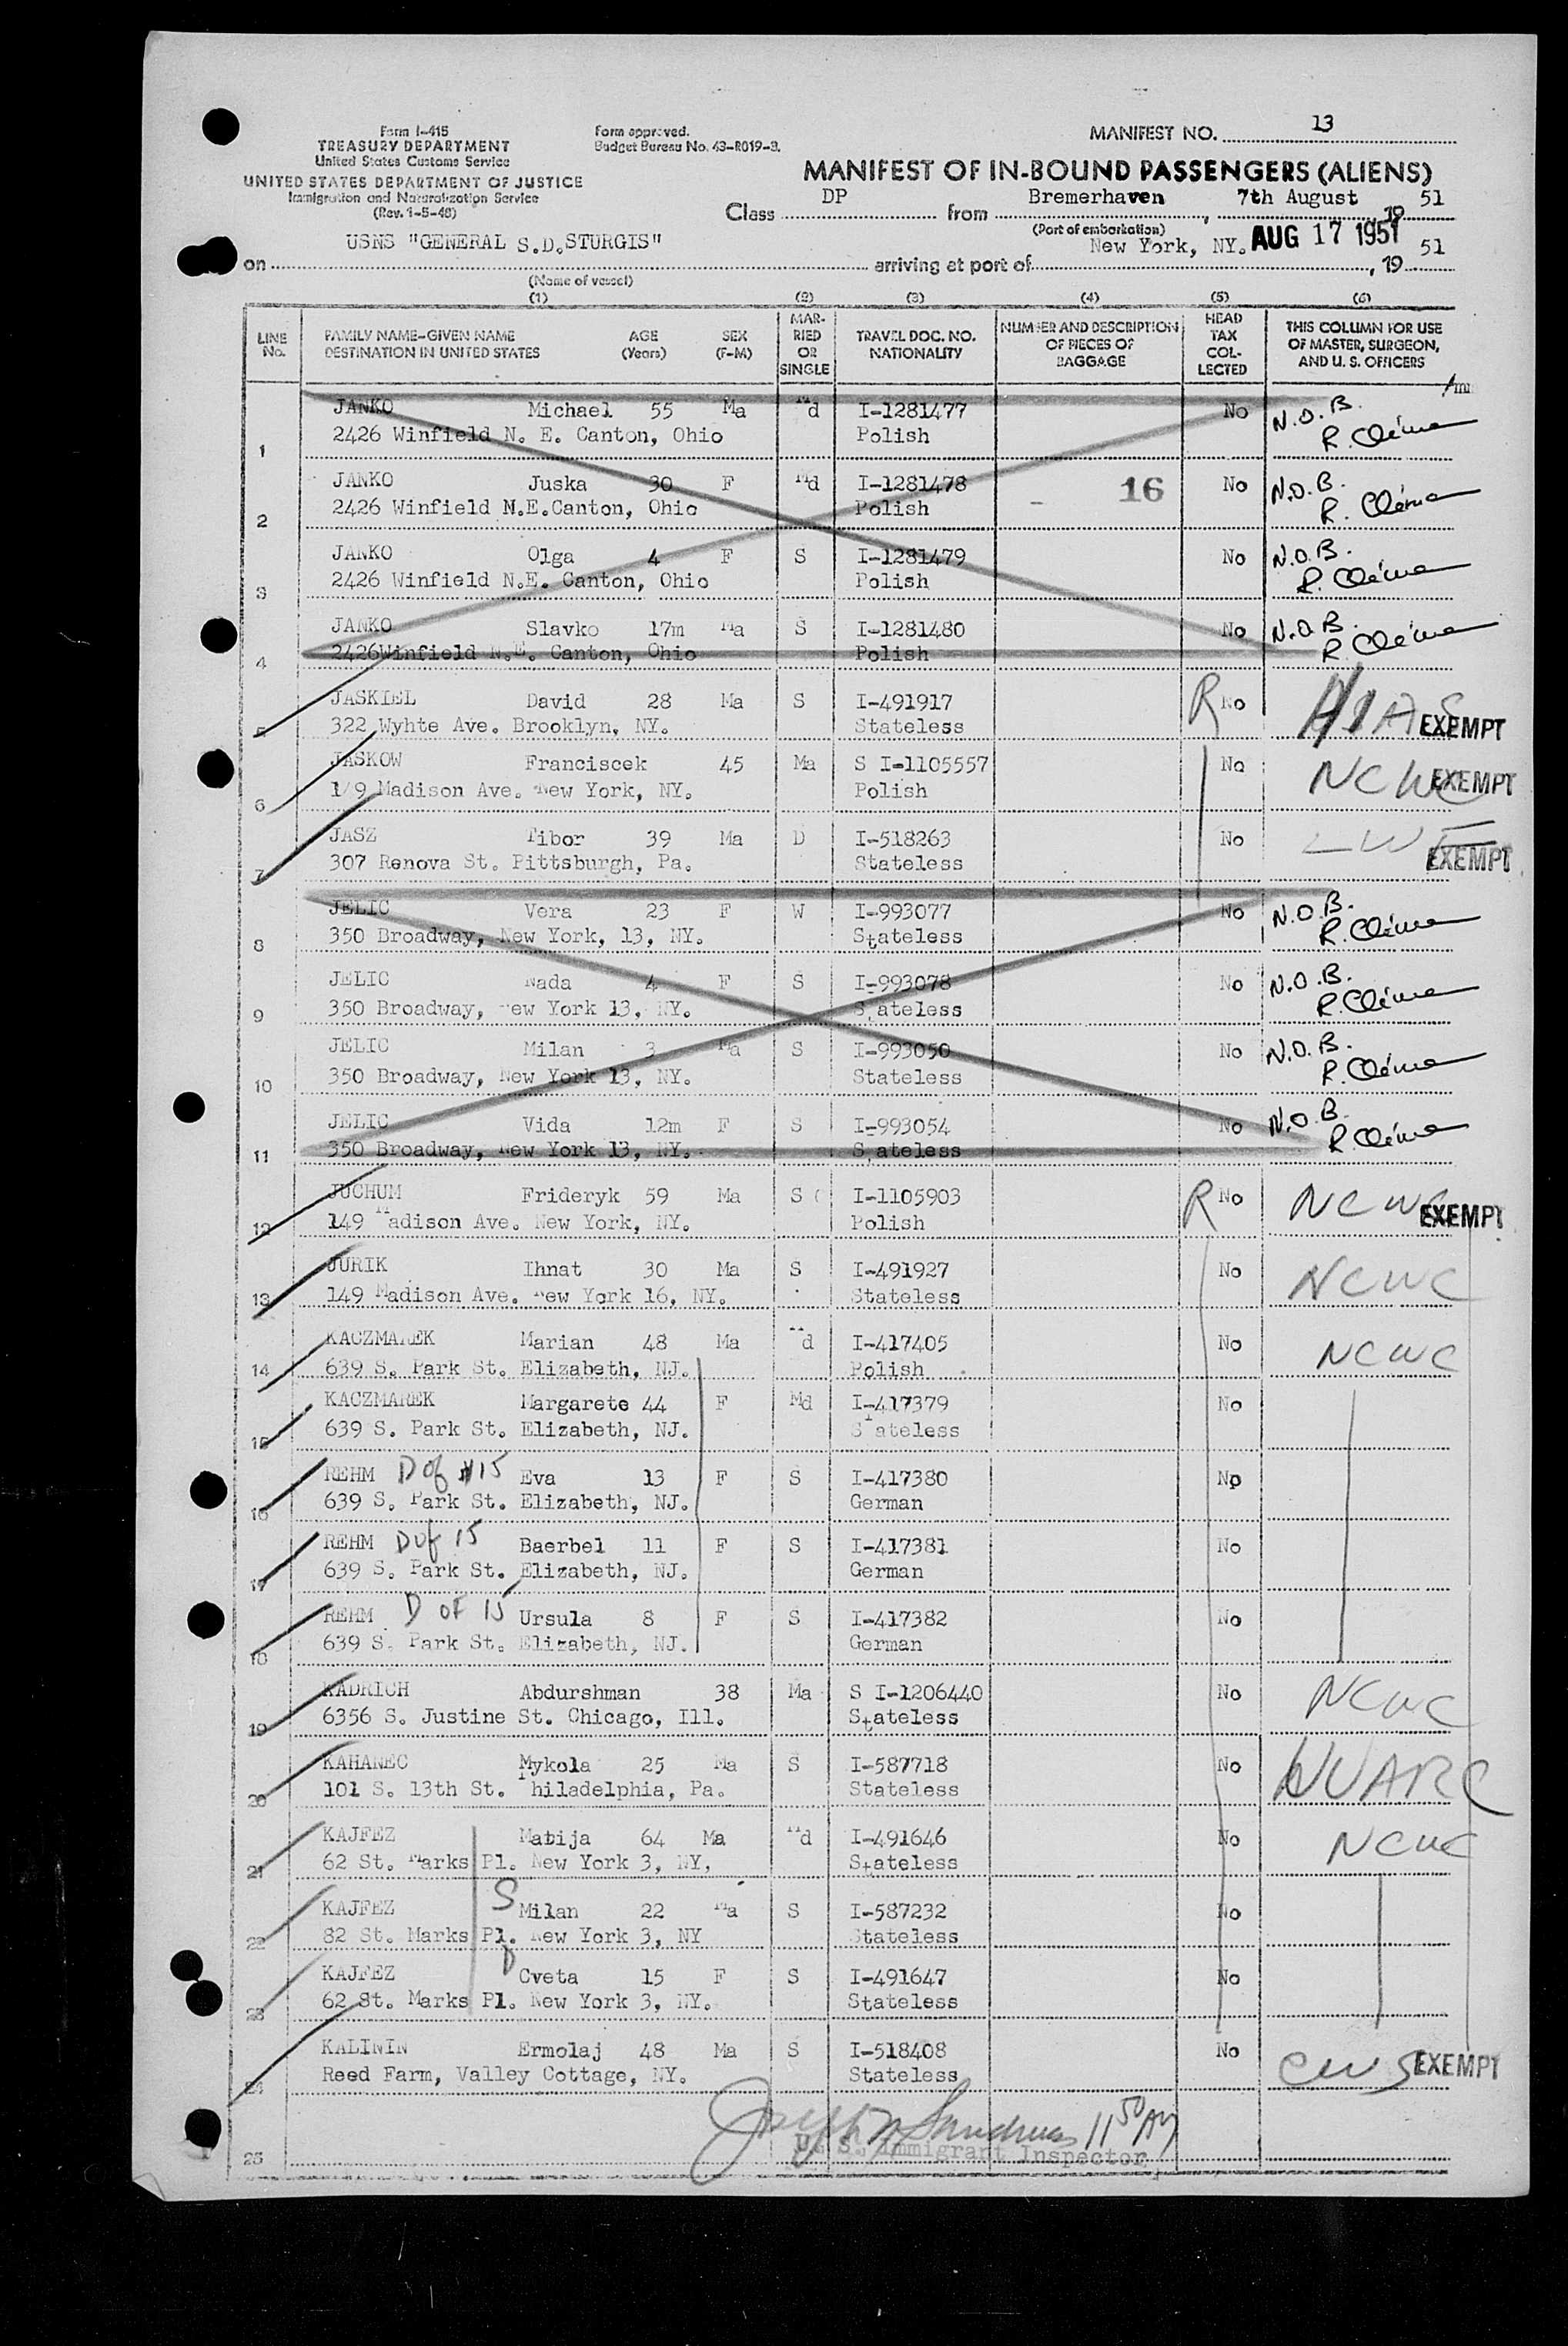 Form I-415
TREASURY DEPARTMENT
United States Customs Service
UNITED STATES DEPARTMENT OF JUSTICE
Immigration and Naturalization Service
(Rev. 1-5-48)
Form approved.
Budget Bureau No. 43-R019-3.
MANIFEST NO. 13
MANIFEST OF IN-BOUND PASSENGERS (ALIENS)
Class DP from Bremerhaven, 7th August, 19 51
(Port of embarkation)
on USNS "GENERAL S.D.STURGIS" arriving at port of New York, NY. AUG 17 1951, 19 51
(Name of vessel)
(1) (2) (3) (4) (5) (6)
LINE No. FAMILY NAME-GIVEN NAME DESTINATION IN UNITED STATES AGE (Years) SEX (F-M) MARRIED OR SINGLE TRAVEL DOC. NO. NATIONALITY NUMBER AND DESCRIPTION OF PIECES OF BAGGAGE HEAD TAX COLLECTED THIS COLUMN FOR USE OF MASTER, SURGEON, AND U. S. OFFICERS
1 JANKO Michael 55 Ma Md I-1281477 No N.O.B.
2426 Winfield N. E. Canton, Ohio Polish
2 JANKO Juska 30 F Md I-1281478 16 No N.O.B.
2426 Winfield N.E.Canton, Ohio Polish
3 JANKO Olga 4 F S I-1281479 No N.O.B.
2426 Winfield N.E. Canton, Ohio Polish
4 JANKO Slavko 17m Ma S I-1281480 No N.O.B.
2426Winfield N.E. Canton, Ohio Polish
5 JASKIEL David 28 Ma S I-491917 R No HIAS EXEMPT
322 Wyhte Ave. Brooklyn, NY. Stateless
6 JASKOW Franciscek 45 Ma S I-1105557 No NCWC EXEMPT
149 Madison Ave. New York, NY. Polish
7 JASZ Tibor 39 Ma D I-518263 No LWF EXEMPT
307 Renova St. Pittsburgh, Pa. Stateless
8 JELIC Vera 23 F W I-993077 No N.O.B.
350 Broadway, New York, 13, NY. Stateless
9 JELIC Nada 4 F S I-993078 No N.O.B.
350 Broadway, New York 13, NY. Stateless
10 JELIC Milan 3 Ma S I-993050 No N.O.B.
350 Broadway, New York 13, NY. Stateless
11 JELIC Vida 12m F S I-993054 No N.O.B.
350 Broadway, New York 13, NY. Stateless
12 JUCHUM Frideryk 59 Ma S I-1105903 R No NCWC EXEMPT
149 Madison Ave. New York, NY. Polish
13 JURIK Ihnat 30 Ma S I-491927 No NCWC
149 Madison Ave. New York 16, NY. Stateless
14 KACZMAREK Marian 48 Ma Md I-417405 No NCWC
639 S. Park St. Elizabeth, NJ. Polish
15 KACZMAREK Margarete 44 F Md I-417379 No
639 S. Park St. Elizabeth, NJ. Stateless
16 REHM D of #15 Eva 13 F S I-417380 No
639 S. Park St. Elizabeth, NJ. German
17 REHM D of 15 Baerbel 11 F S I-417381 No
639 S. Park St. Elizabeth, NJ. German
18 REHM D OF 15 Ursula 8 F S I-417382 No
639 S. Park St. Elizabeth, NJ. German
19 KADRICH Abdurshman 38 Ma S I-1206440 No NCWC
6356 S. Justine St. Chicago, Ill. Stateless
20 KAHANEC Mykola 25 Ma S I-587718 No UUARC
101 S. 13th St. Philadelphia, Pa. Stateless
21 KAJFEZ Matija 64 Ma Md I-491646 No NCWC
62 St. Marks Pl. New York 3, NY, Stateless
22 KAJFEZ S Milan 22 Ma S I-587232 No
82 St. Marks Pl. New York 3, NY Stateless
23 KAJFEZ D Cveta 15 F S I-491647 No
62 St. Marks Pl. New York 3, NY. Stateless
24 KALININ Ermolaj 48 Ma S I-518408 No CWS EXEMPT
Reed Farm, Valley Cottage, NY. Stateless
11 50 AM
25 U. S. Immigrant Inspector